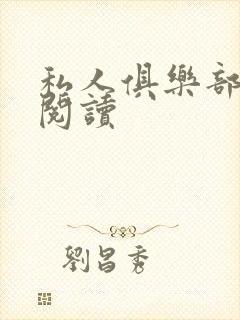 私人俱樂部
閱讀
劉昌秀